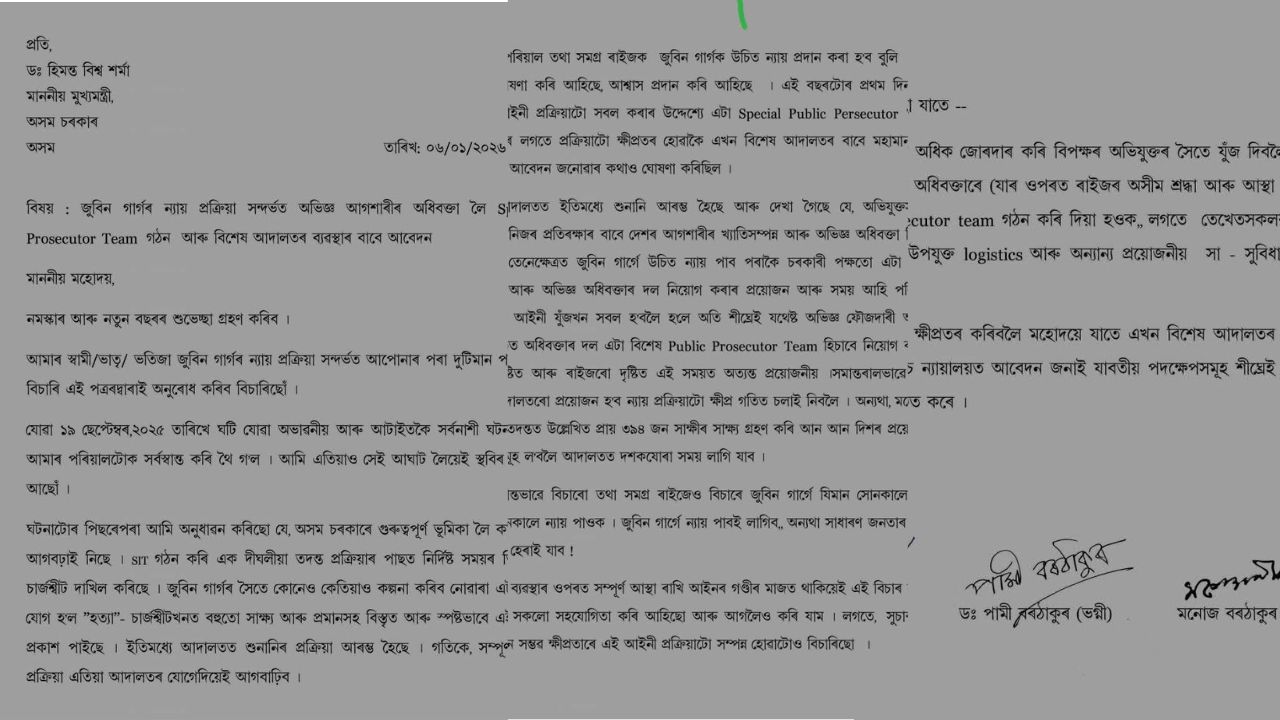 প্ৰতি,
ডঃ হিমন্ত বিশ্ব শৰ্মা
মাননীয় মুখ্যমন্ত্ৰী,
অসম চৰকাৰ
অসম
তাৰিখ: ০৬/০১/২০২৬
বিষয় : জুবিন গাৰ্গৰ ন্যায় প্ৰক্ৰিয়া সন্দৰ্ভত অভিজ্ঞ আগশাৰীৰ অধিবক্তা লৈ
Prosecutor Team গঠন আৰু বিশেষ আদালতৰ ব্যৱস্থাৰ বাবে আবেদন
মাননীয় মহোদয়,
নমস্কাৰ আৰু নতুন বছৰৰ শুভেচ্ছা গ্ৰহণ কৰিব ।
আমাৰ স্বামী/ভাতৃ/ ভতিজা জুবিন গাৰ্গৰ ন্যায় প্ৰক্ৰিয়া সন্দৰ্ভত আপোনাৰ পৰা দুটিমান
বিচাৰি এই পত্ৰৰদ্বাৰাই অনুৰোধ কৰিব বিচাৰিছোঁ ।
যোৱা ১৯ ছেপ্টেম্বৰ,২০২৫ তাৰিখে ঘটি যোৱা অভাৱনীয় আৰু আটাইতকৈ সৰ্বনাশী
আমাৰ পৰিয়ালটোক সৰ্বস্বান্ত কৰি থৈ গ'ল । আমি এতিয়াও সেই আঘাট লৈয়েই স্থবিৰ
আছোঁ ।
ঘটনাটোৰ পিছৰেপৰা আমি অনুধাৱন কৰিছো যে, অসম চৰকাৰে গুৰুত্বপূৰ্ণ ভূমিকা লৈ
আগবঢ়াই নিছে । SIT গঠন কৰি এক দীঘলীয়া তদন্ত প্ৰক্ৰিয়াৰ পাছত নিৰ্দিষ্ট সময়ৰ
চাৰ্জশ্বীট দাখিল কৰিছে । জুবিন গাৰ্গৰ সৈতে কোনেও কেতিয়াও কল্পনা কৰিব নোৱাৰা
যোগ হ'ল ”হত্যা”- চাৰ্জশ্বীটখনত বহুতো সাক্ষ্য আৰু প্ৰমানসহ বিস্তৃত আৰু স্পষ্টভাৱে
প্ৰকাশ পাইছে । ইতিমধ্যে আদালতত শুনানিৰ প্ৰক্ৰিয়া আৰম্ভ হৈছে । গতিকে,
প্ৰক্ৰিয়া এতিয়া আদালতৰ যোগেদিয়েই আগবাঢ়িব ।
তথা সমগ্ৰ ৰাইজক জুবিন গাৰ্গক উচিত ন্যায় প্ৰদান কৰা হ'ব বুলি
কৰি আহিছে, আশ্বাস প্ৰদান কৰি আহিছে । এই বছৰটোৰ প্ৰথম
প্ৰক্ৰিয়াটো সবল কৰাৰ উদ্দেশ্যে এটা Special Public Persecutor
লগতে প্ৰক্ৰিয়াটো ক্ষীপ্ৰতৰ হোৱাকৈ এখন বিশেষ আদালতৰ বাবে
আবেদন জনোৱাৰ কথাও ঘোষণা কৰিছিল ।
ইতিমধ্যে শুনানি আৰম্ভ হৈছে আৰু দেখা গৈছে যে,
নিজৰ প্ৰতিৰক্ষাৰ বাবে দেশৰ আগশাৰীৰ খ্যাতিসম্পন্ন আৰু অভিজ্ঞ অধিবক্তা
তেনেক্ষেত্ৰত জুবিন গাৰ্গে উচিত ন্যায় পাব পৰাকৈ চৰকাৰী পক্ষতো এটা
আৰু অভিজ্ঞ অধিবক্তাৰ দল নিয়োগ কৰাৰ প্ৰয়োজন আৰু সময় আহি
আইনী যুঁজখন সবল হ'বলৈ হ'লে অতি শীঘ্ৰেই যথেষ্ট অভিজ্ঞ ফৌজদাৰী
অধিবক্তাৰ দল এটা বিশেষ Public Prosecutor Team হিচাবে নিয়োগ
আৰু ৰাইজৰো দৃষ্টিত এই সময়ত অত্যন্ত প্ৰয়োজনীয় ।সমান্তৰালভাৱে
প্ৰয়োজন হ'ব ন্যায় প্ৰক্ৰিয়াটো ক্ষীপ্ৰ গতিত চলাই নিবলৈ । অন্যথা,
উল্লেখিত প্ৰায় ৩৯৪ জন সাক্ষীৰ সাক্ষ্য গ্ৰহণ কৰি আন আন দিশৰ
ল'বলৈ আদালতত দশকযোৰা সময় লাগি যাব ।
বিচাৰো তথা সমগ্ৰ ৰাইজেও বিচাৰে জুবিন গাৰ্গে যিমান সোনকালে
ন্যায় পাওক । জুবিন গাৰ্গে ন্যায় পাবই লাগিব,, অন্যথা সাধাৰণ জনতাৰ
হেৰাই যাব !
ব্যৱস্থাৰ ওপৰত সম্পূৰ্ণ আস্থা ৰাখি আইনৰ গণ্ডীৰ মাজত থাকিয়েই এই বিচাৰ
সকলো সহযোগিতা কৰি আহিছো আৰু আগলৈও কৰি যাম । লগতে,
সম্ভৱ ক্ষীপ্ৰতাৰে এই আইনী প্ৰক্ৰিয়াটো সম্পন্ন হোৱাটোও বিচাৰিছো ।
যাতে --
অধিক জোৰদাৰ কৰি বিপক্ষৰ অভিযুক্তৰ সৈতে যুঁজ
অধিবক্তাৰে (যাৰ ওপৰত ৰাইজৰ অসীম শ্ৰদ্ধা আৰু আস্থা
team গঠন কৰি দিয়া হওক,, লগতে তেখেতসকল
উপযুক্ত logistics আৰু অন্যান্য প্ৰয়োজনীয় সা - সুবিধা
ক্ষীপ্ৰতৰ কৰিবলৈ মহোদয়ে যাতে এখন বিশেষ আদালতৰ
ন্যায়ালয়ত আবেদন জনাই যাবতীয় পদক্ষেপসমূহ শীঘ্ৰেই
কৰে ।
পামী বৰঠাকুৰ
ডঃ পামী বৰঠাকুৰ (ভগ্নী)
মনোজ বৰঠাকুৰ